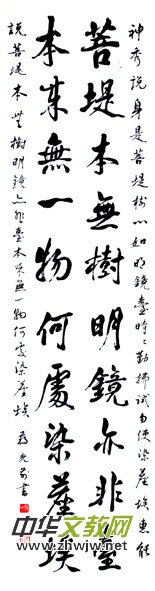 神秀説身是菩堤樹心如明鏡臺時々勤拂試勿使染塵埃惠能
菩堤本無樹明鏡亦非臺
本来無一物何處染塵埃
説菩堤本無樹明鏡亦非臺本来無一物何處染塵埃 書
中华文教网
www.zhwjw.net